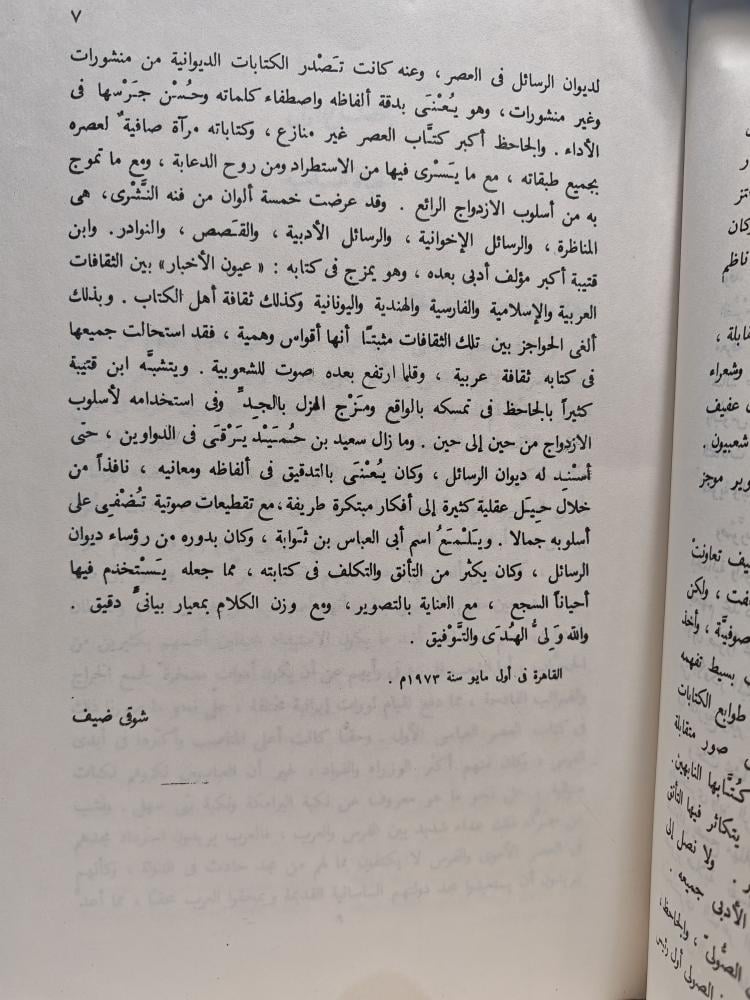 ٧
لديوان الرسائل فى العصر ، وعنه كانت تَصْدر الكتابات الديوانية من منشورات
وغير منشورات، وهو يُعْنَى بدقة ألفاظه واصطفاء كلماته وحُسْن جَرْسها فى
الأداء . والجاحظ أكبر كتَّاب العصر غير منازع ، وكتاباته مرآة صافيةٌ لعصره
بجميع طبقاته ، مع ما يَسْرى فيها من الاستطراد ومن روح الدعابة ، ومع ما تموج
به من أسلوب الازدواج الرائع . وقد عرضت خمسة ألوان من فنه النَّثْرى، هى
المناظرة ، والرسائل الإخوانية ، والرسائل الأدبية ، والقَصص ، والنوادر . وابن
قتيبة أكبر مؤلف أدبى بعده ، وهو يمزج فى كتابه : « عيون الأخبار» بين الثقافات
العربية والإسلامية والفارسية والهندية واليونانية وكذلك ثقافة أهل الكتاب . وبذلك
ألغى الحواجز بين تلك الثقافات مثبتًا أنها أقواس وهمية ، فقد استحالت جميعها
فى كتابه ثقافة عربية ، وقلما ارتفع بعده صوت للشعوبية . ويتشبَّه ابن قتيبة
كثيراً بالجاحظ فى تمسكه بالواقع ومَزْج الهزل بالجِدِّ وفى استخدامه لأسلوب
الازدواج من حين إلى حين . وما زال سعيد بن حُمَيْد يَرْقَى فى الدواوين ، حتى
أسْند له ديوان الرسائل ، وكان يُعْنَى بالتدقيق فى ألفاظه ومعانيه ، نافذاً من
خلال حِيَل عقلية كثيرة إلى أفكار مبتكرة طريفة، مع تقطيعات صوتية تُضْفِى على
أسلوبه جمالا . ويَلْمَعُ اسم أبى العباس بن ثَوابة ، وكان بدوره من رؤساء ديوان
الرسائل ، وكان يكثر من التأنق والتكلف فى كتابته ، مما جعله يَسْتخدم فيها
أحياناً السجع ، مع العناية بالتصوير، ومع وزن الكلام بمعيار بيانىٍّ دقيق .
والله وَلىُّ الهُدَى والتَّوْفيق .
القاهرة فى أول مايو سنة ١٩٧٣م .
شوقى ضيف
ناظم
وشعراء
عفيف
شعبيون .
موجز
تعاونتْ
، ولكن
صوفيَّة ، وأخذ
بسيط تفهمه
طوابع الكتابات
صور متقابلة
كُتَّابها النابهين.
يتكاثر فيها التأنق
. ولا نصل إلى
الأدبى جميعه .
الصُّولىّ ، والجاحظ،
الصولى أول رئيس